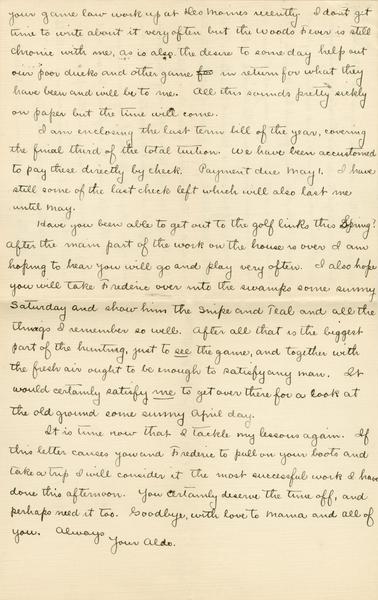 your game law work up at Des Moines recently. I dont get
time to write about it very often but the Woods Fever is still
chronic with me, as is also the desire to some day help out
our poor ducks and other game in return for what they
have been and will be to me. All this sounds pretty sickly
on paper but the time will come.
I am enclosing the last term bill of the year, covering
the final third of the total tuition. We have been accustomed
to pay these directly by check. Payment due May 1. I have
still some of the last check left which will also last me
until May.
Have you been able to get out to the golf links this Spring?
After the main part of the work on the house is over I am
hoping to hear you will go and play very often. I also hope
you will take Frederic over into the swamps some sunny
Saturday and show him the Snipe and Teal and all the
things I remember so well. After all that is the biggest
part of the hunting, just to see the game, and together with
the fresh air ought to be enough to satisfy any man. It
would certainly satisfy me to get over there for a look at
the old ground some sunny April day.
It is time now that I tackle my lessons again. If
this letter causes you and Frederic to pull on your boots and
take a trip I will consider it the most successful work I have
done this afternoon. You certainly deserve the time off, and
perhaps need it too. Goodbye, with love to Mama and all of
you. Always
Your Aldo.